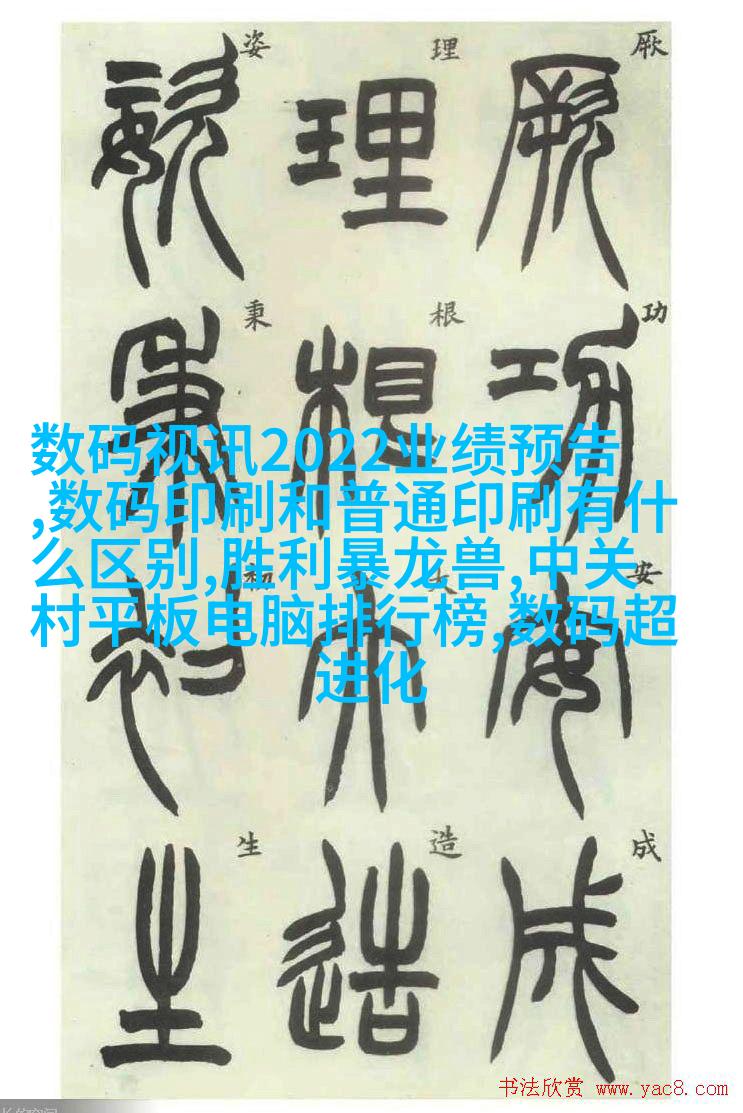 厥功安成
厥功安成
理根大造
理根大造
姿秉初生
姿秉初生
数码视讯2022业绩预告
,数码印刷和普通印刷有什
么区别,胜利暴龙兽,中关
村平板电脑排行榜,数码超
进化
书法欣赏 www.yac8.com